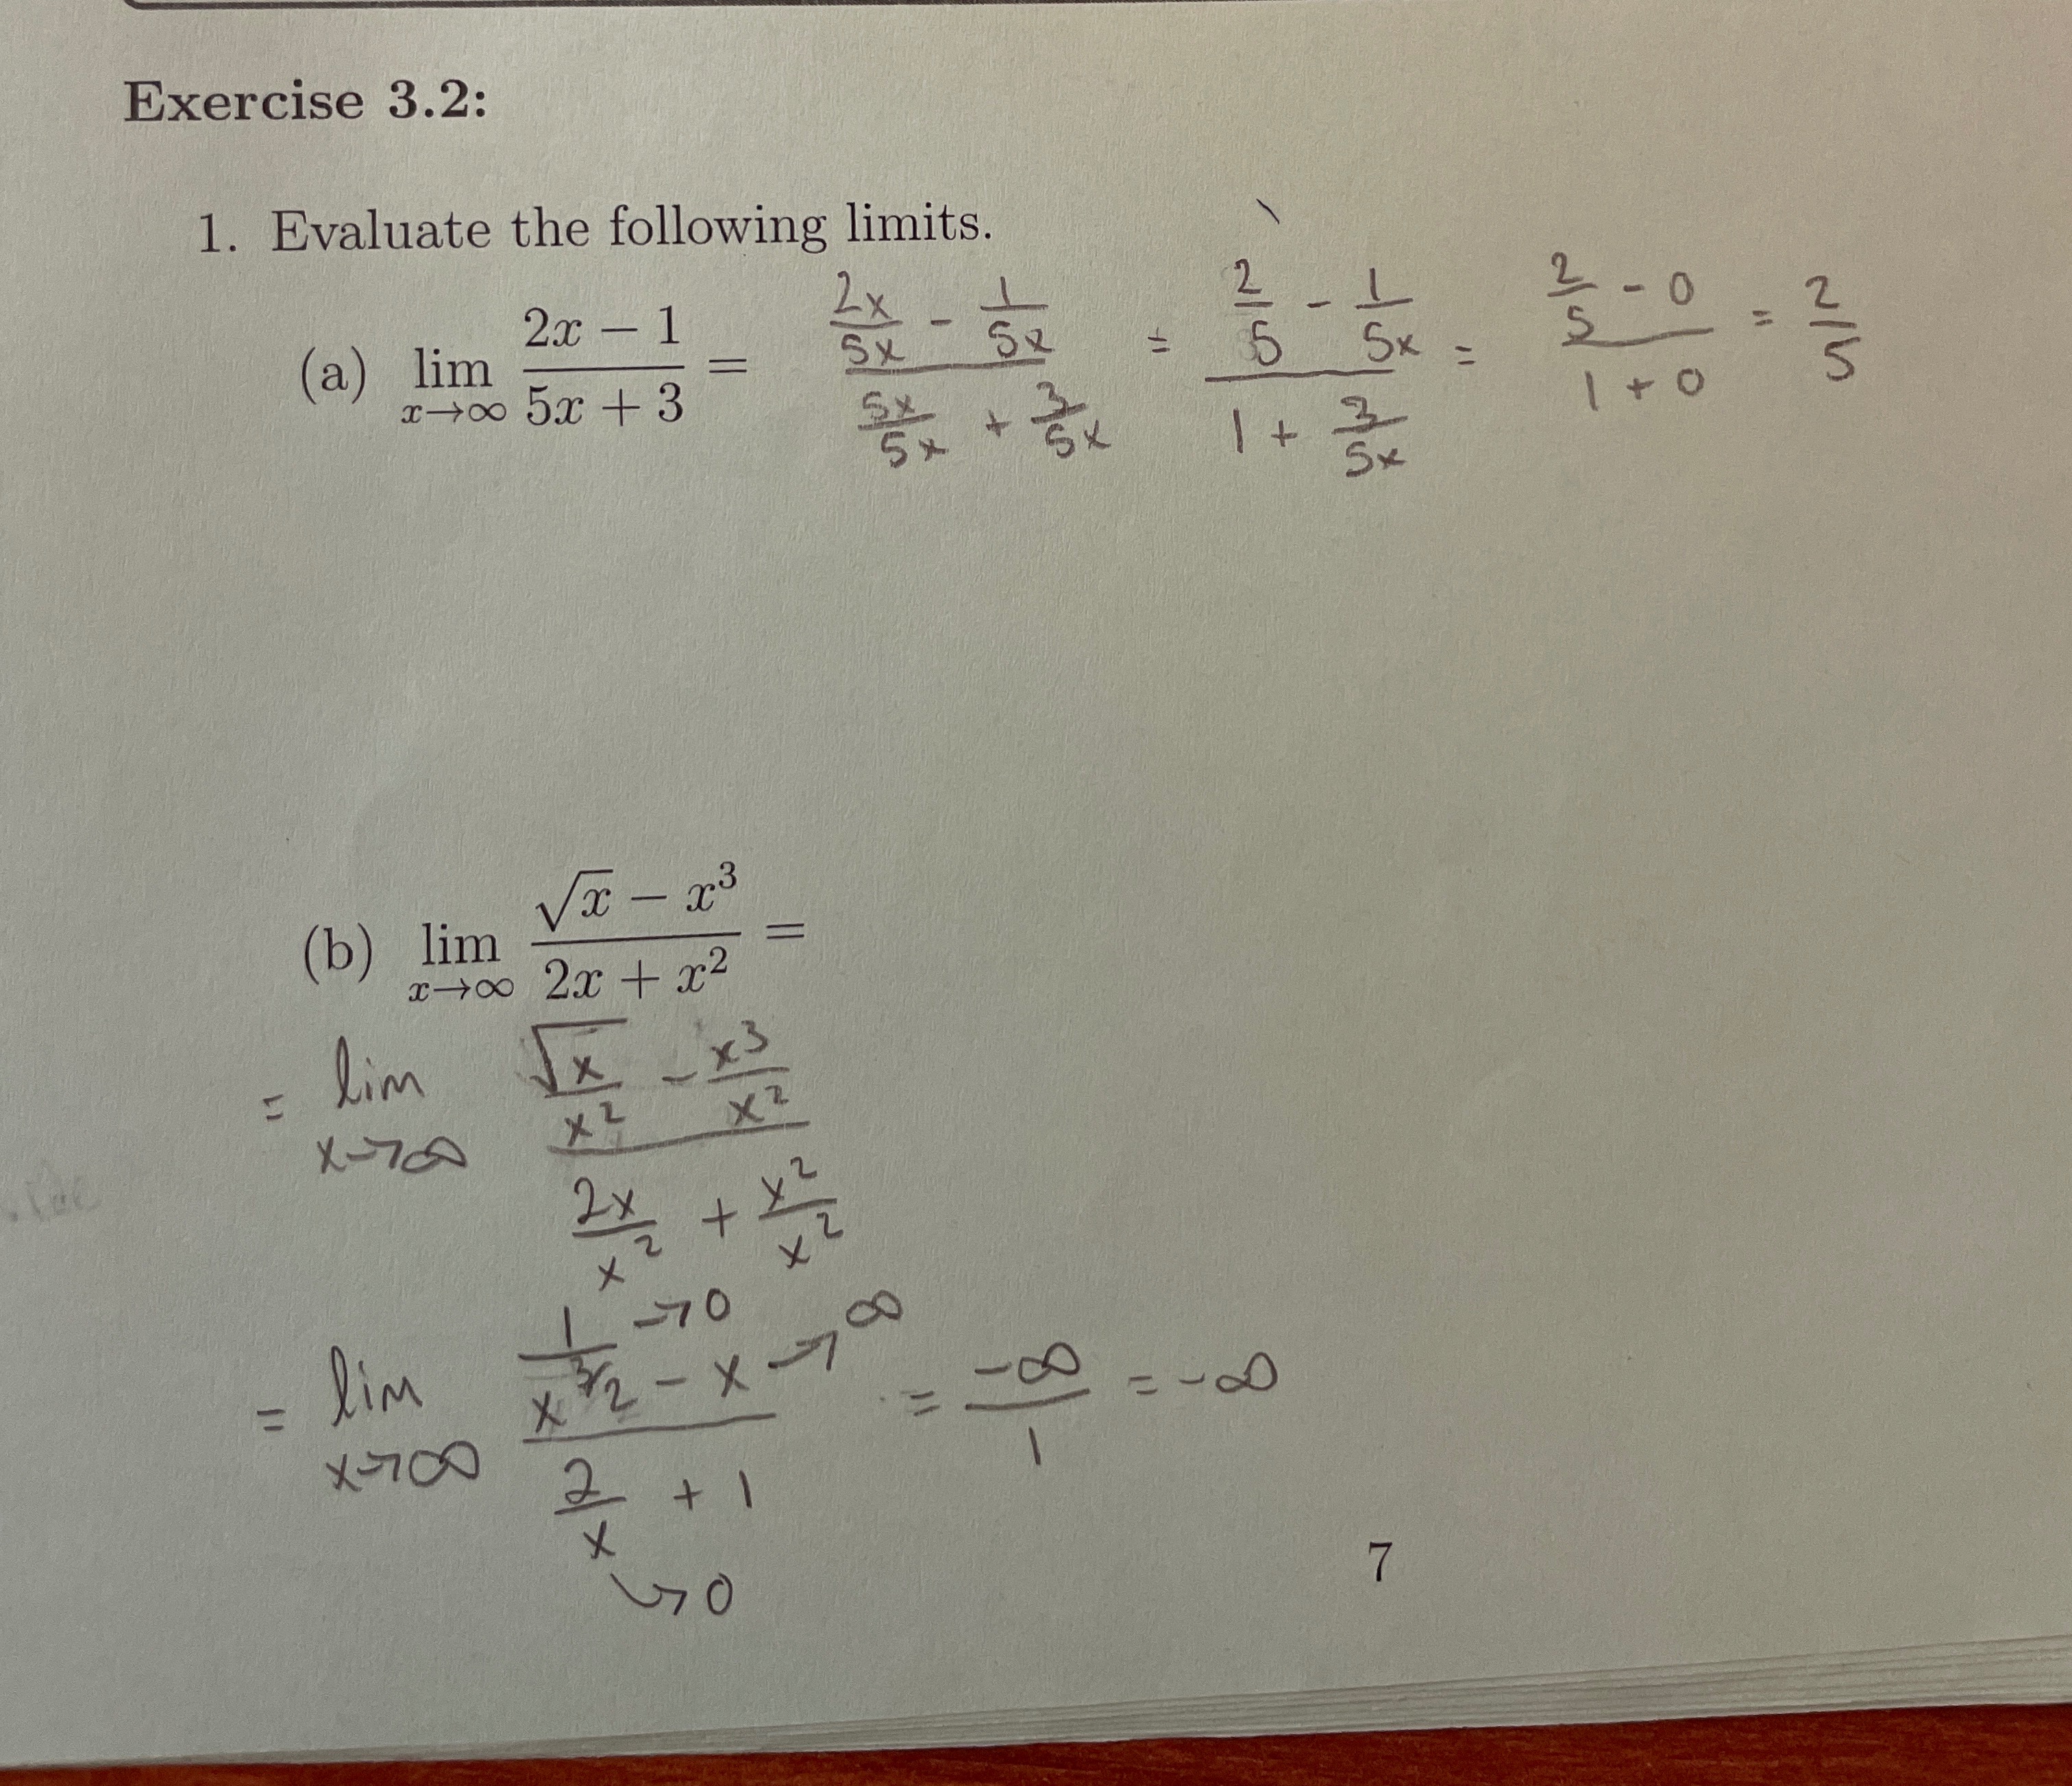 Exercise 3.2:
1. Evaluate the following limits.
(a) lim_{x→∞} (2x − 1)/(5x + 3) = (2x/5x − 1/5x)/(5x/5x + 3/5x) = (2/5 − 1/5x)/(1 + 3/5x) = (2/5 − 0)/(1 + 0) = 2/5
(b) lim_{x→∞} (√x − x³)/(2x + x²) =
= lim_{x→∞} (√x/x² − x³/x²)/(2x/x² + x²/x²)
= lim_{x→∞} (1/x^{3/2} →0 − x →∞)/(2/x →0 + 1) = −∞/1 = −∞
7